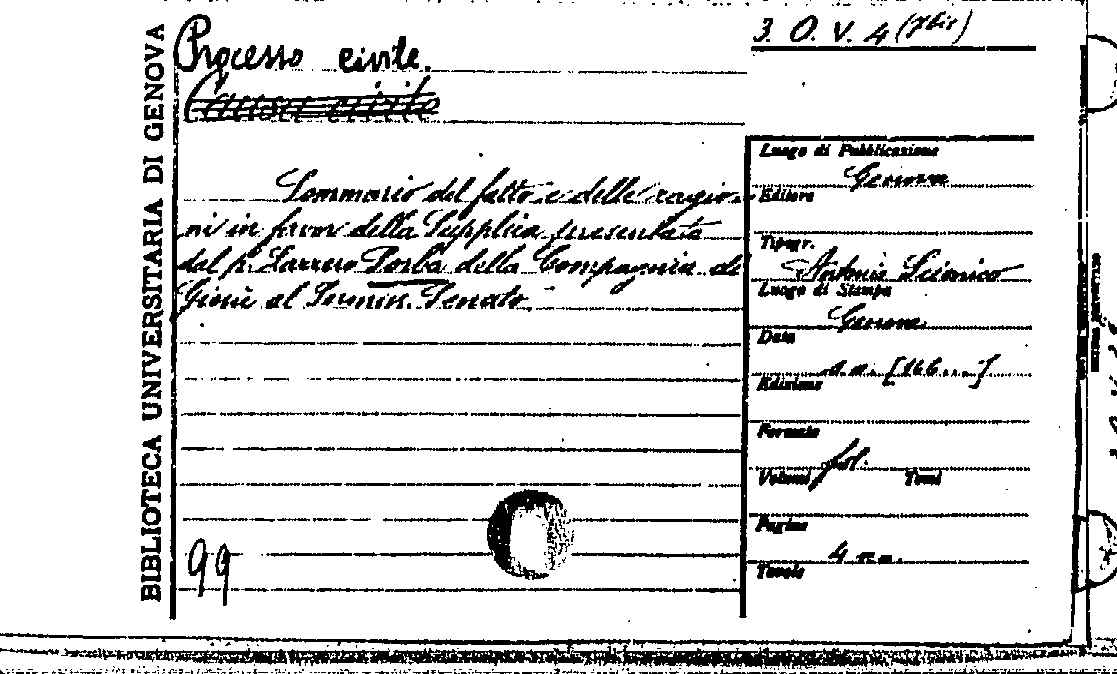 BIBLIOTECA UNIVERSITARIA DI GENOVA
3. O. V. 4 (7bis)
Processo civile.
Causa civile
Sommario del fatto e delle ragio-
ni in favor della Supplica presentata
dal p. Lazzaro Sorba della Compagnia di
Giesù al Seren. Senato
99
Luogo di Pubblicazione
Genova
Editore
Tipogr.
Antonio Scionico
Luogo di Stampa
Genova
Data
a. n. [166...]
Edizione
Formato
fol.
Volumi Tomi
Pagine
4 nn.
Tavole